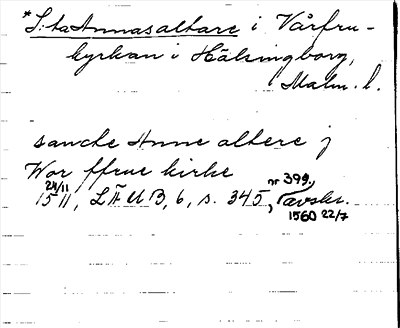 *S:ta Annas altare i Vårfru-
kyrkan i Hälsingborg,
i Malm. l.
sancte Anne altere j
Wor ffrue kirke
24/11 1511, LÄUB, 6, s. 345, nr 399, avskr.
1560 22/7